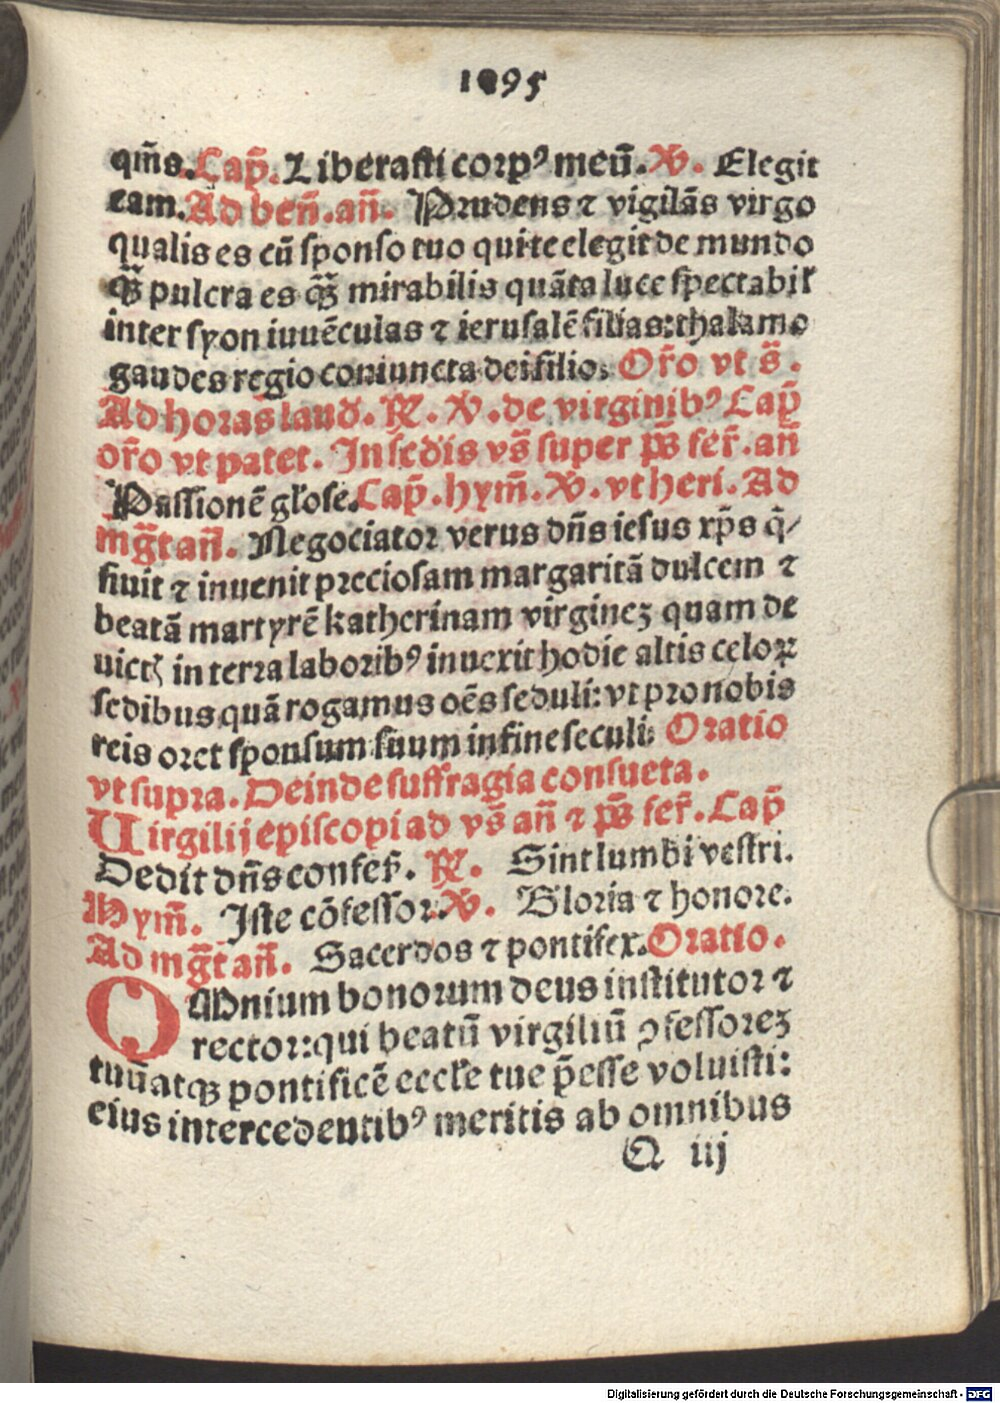 1095
qm̄s. Cap̄. Liberasti corpꝰ meū. ℣. Elegit
eam. Ad ben̄. an̄. Prudens ⁊ vigilās virgo
qualis es cū sponso tuo qui te elegit de mundo
q̄ꝫ pulcra es q̄ꝫ mirabilis quāta luce spectabil̄
inter syon iuuēculas ⁊ ierusalē filias: thalamo
gaudes regio coniuncta dei filio. Or̄o vt s̄.
Ad horas laud. ℟. ℣. de virginibꝰ Cap̄
or̄o vt patet. In scd̄is vs̄ super ps̄ fer̄. an̄
Passionē gl̄ose. Cap̄. hym̄. ℣. vt heri. Ad
mḡt an̄. Negociator verus dn̄s iesus xp̄s q̄/
siuit ⁊ inuenit preciosam margaritā dulcem ⁊
beatā martyrē katherinam virginez quam de
uictꝭ in terra laboribꝰ inuexit hodie altis celoꝝ
sedibus quā rogamus oēs seduli: vt pro nobis
reis oret sponsum suum in fine seculi. Oratio
vt supra. Deinde suffragia consueta.
Uirgilij episcopi ad vs̄ an̄ ⁊ ps̄ fer̄. Cap̄
Dedit dn̄s confes̄. ℟. Sint lumbi vestri.
Hym̄. Iste cōfessor. ℣. Gloria ⁊ honore.
Ad mḡt an̄. Sacerdos ⁊ pontifex. Oratio.
OMnium bonorum deus institutor ⁊
rector: qui beatū virgiliū ꝯfessorez
tuū atqꝫ pontificē eccl̄e tue p̄esse voluisti:
eius intercedentibꝰ meritis ab omnibus
Q iij
Digitalisierung gefördert durch die Deutsche Forschungsgemeinschaft - DFG